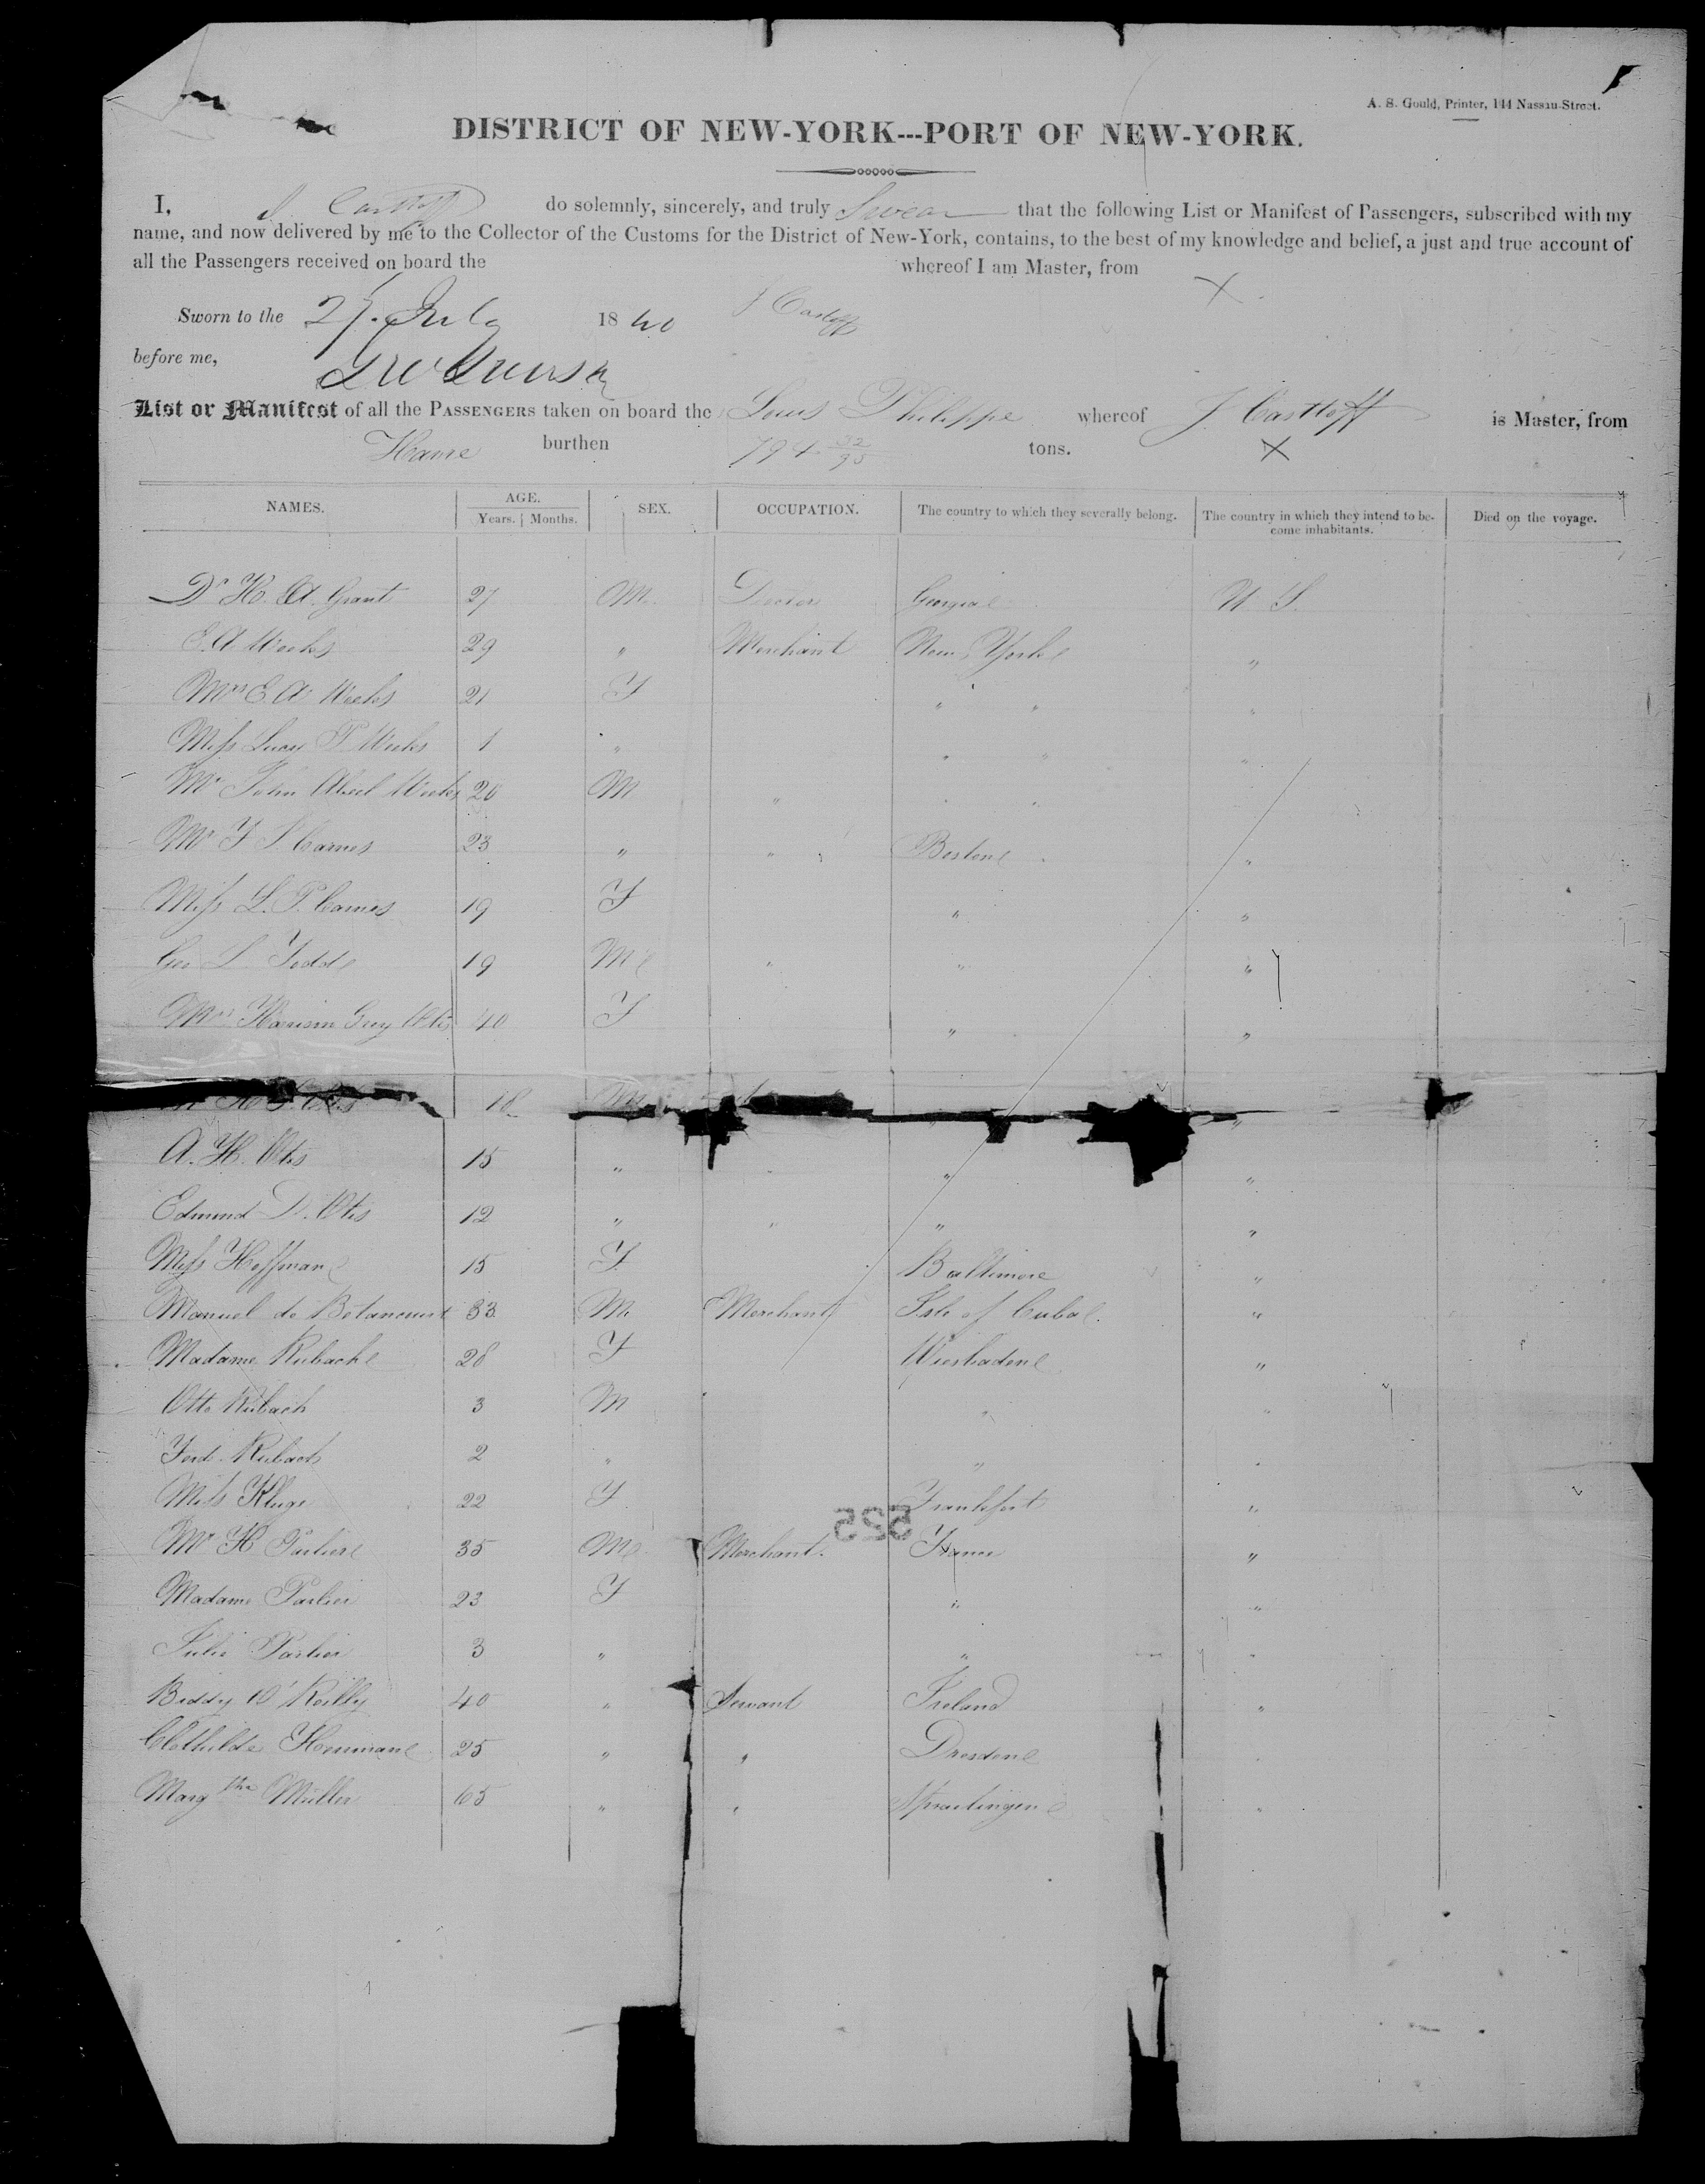 A. S. Gould, Printer, 144 Nassau-Street.
DISTRICT OF NEW-YORK---PORT OF NEW-YORK.
I, J. Castoff do solemnly, sincerely, and truly Swear that the following List or Manifest of Passengers, subscribed with my
name, and now delivered by me to the Collector of the Customs for the District of New-York, contains, to the best of my knowledge and belief, a just and true account of
all the Passengers received on board the whereof I am Master, from
Sworn to the 27 July 1840 J Castoff
before me,
List or Manifest of all the PASSENGERS taken on board the Louis Philippe whereof J. Castoff is Master, from
Havre burthen 794 32/95 tons.
NAMES. AGE. SEX. OCCUPATION. The country to which they severally belong. The country in which they intend to be- Died on the voyage.
Years. Months. come inhabitants.
Dr H. A. Grant 27 M Doctor Georgia U S.
E. A Weeks 29 " Merchant New York "
Mrs E. A. Weeks 21 F " " "
Miss Lucy P Weeks 1 " " " "
Mr John Abeel Weeks 20 M " " " "
Mr F S. Carnes 23 " " Boston "
Miss L. P. Carnes 19 F " "
Geo L Todd 19 M " " "
Mrs Harrison Grey Otis 40 F " "
H G. Otis 18 M " "
A. H. Otis 15 " " " "
Edmund D. Otis 12 " " " "
Miss Hoffman 15 F Baltimore "
Manuel de Betancourt 33 M Merchant Isle of Cuba "
Madame Rubach 28 F Wiesbaden "
Otto Rubach 3 M " "
Ferd. Rubach 2 " " "
Miss Kluge 22 F Frankfort "
525
Mr H Parlier 35 M Merchant France "
Madame Parlier 23 F " "
Julie Parlier 3 " " "
Biddy O'Reilly 40 " Servant Ireland "
Clothilde Herrmann 25 " " Dresden "
Margthe Müller 65 " " "